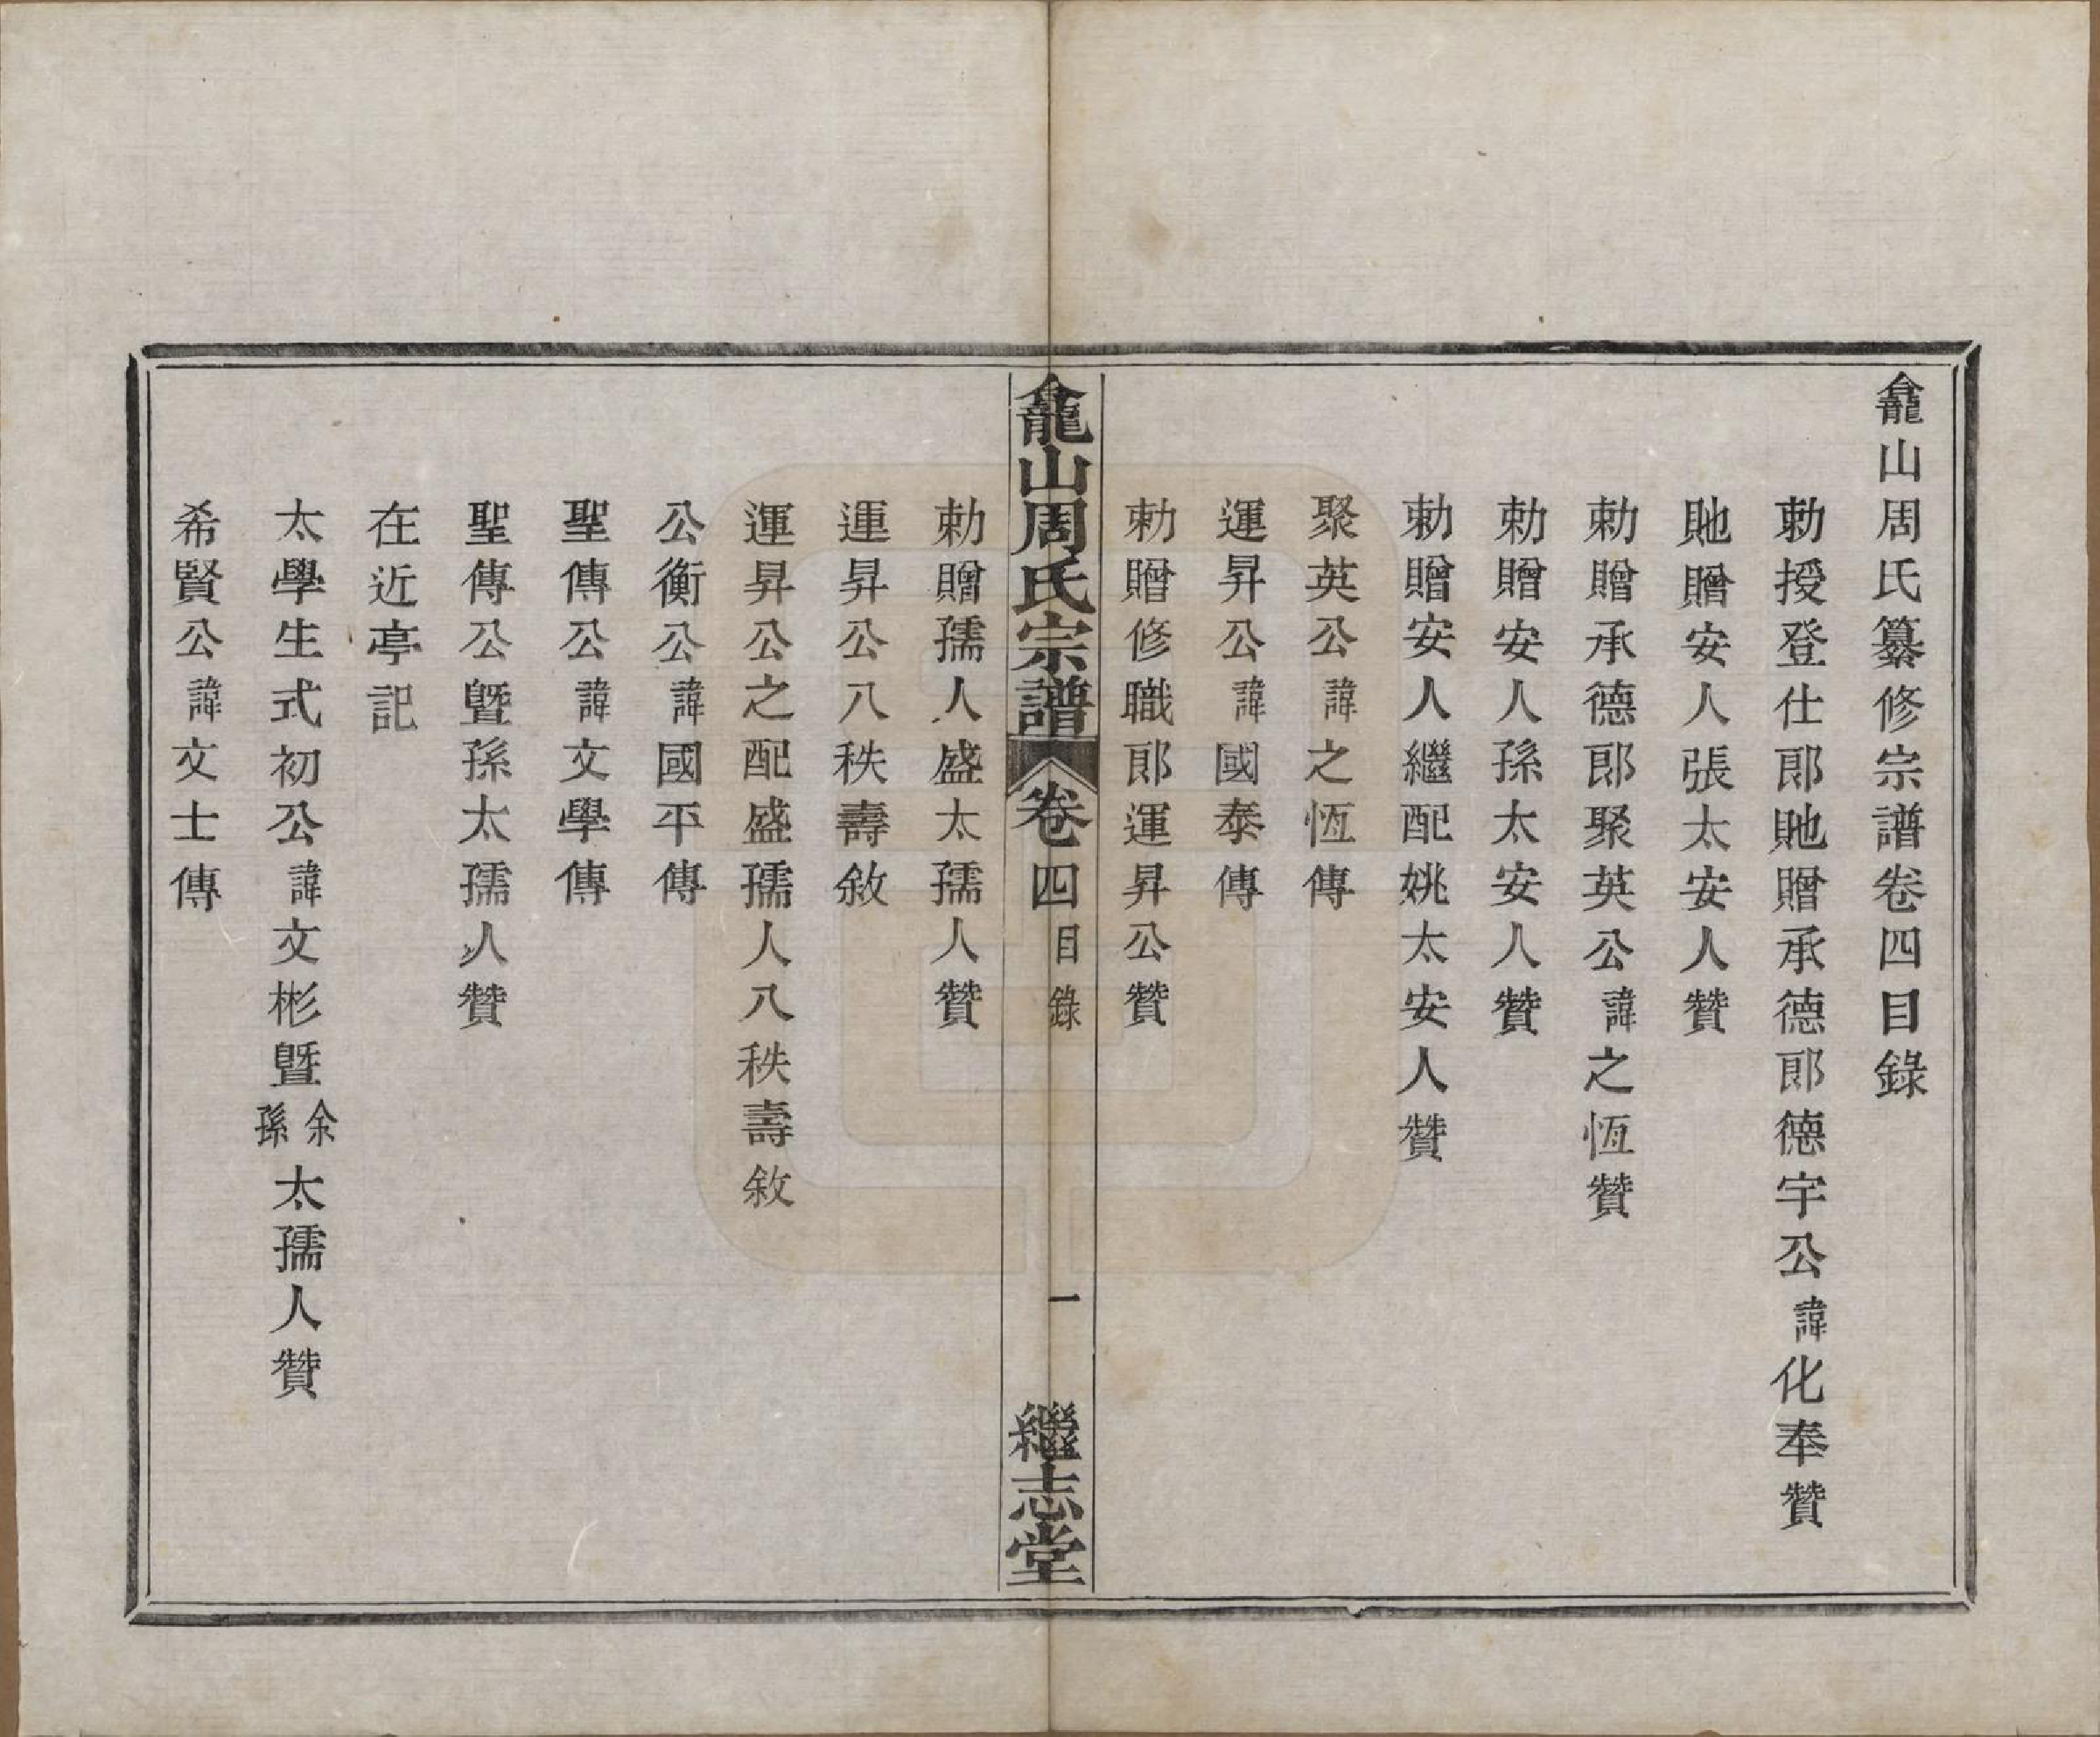 龕山周氏纂修宗譜卷四目錄
勅授登仕郎貤贈承德郎德宇公諱化奉贊
貤贈安人張太安人贊
勅贈承德郎聚英公諱之恆贊
勅贈安人孫太安人贊
勅贈安人繼配姚太安人贊
聚英公諱之恆傳
運昇公諱國泰傳
勅贈修職郎運昇公贊
龕山周氏宗譜 卷四 目錄 一 繼志堂
勅贈孺人盛太孺人贊
運昇公八秩壽敘
運昇公之配盛孺人八秩壽敘
公衡公諱國平傳
聖傳公諱文學傳
聖傳公暨孫太孺人贊
在近亭記
太學生式初公諱文彬暨余孫太孺人贊
希賢公諱文士傳